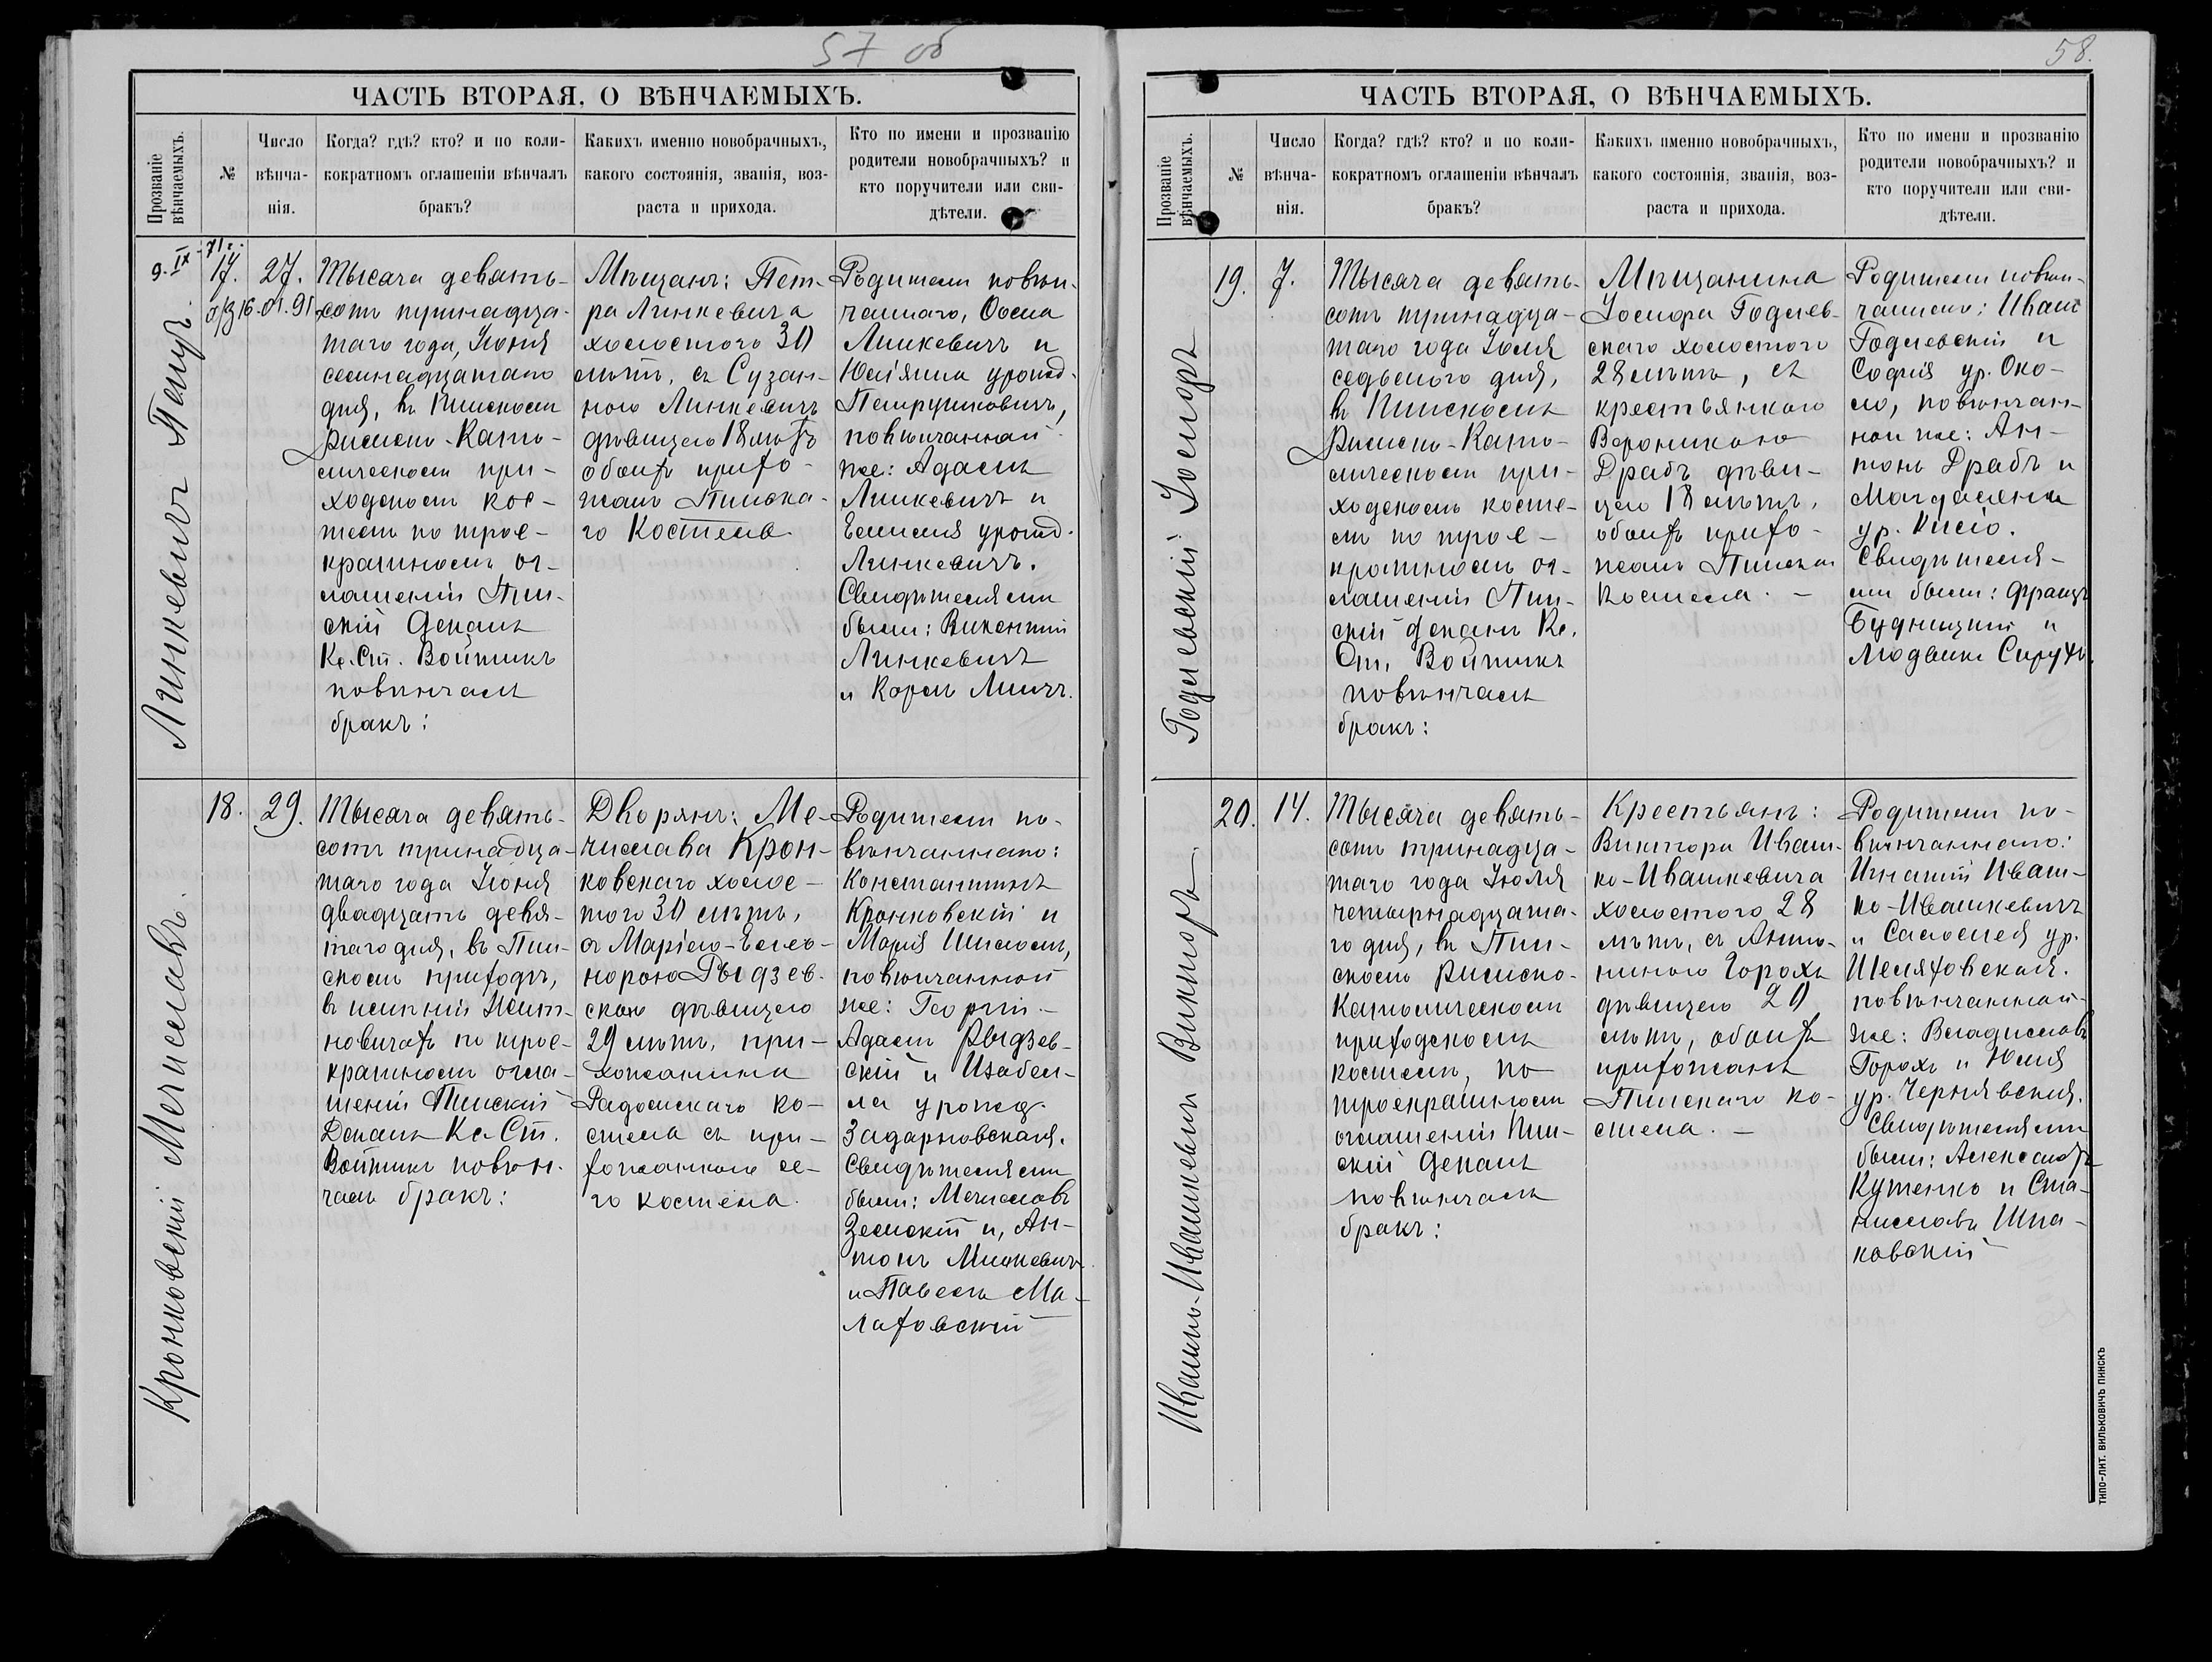 57 об
ЧАСТЬ ВТОРАЯ, О ВѢНЧАЕМЫХЪ.
Прозваніе
вѣнчаемыхъ.
№
Число
вѣнча-
нія.
Когда? гдѣ? кто? и по коли-
кократномъ оглашеніи вѣнчалъ
бракъ?
Какихъ именно новобрачныхъ,
какого состоянія, званія, воз-
раста и прихода.
Кто по имени и прозванію
родители новобрачныхъ? и
кто поручители или сви-
дѣтели.
9. IX - 71 г.
Линкевичъ Петръ.
17.
16.01.91
27.
Тысяча девять-
сотъ тринадца-
таго года, Іюня
семнадцатаго
дня, въ Пинскомъ
Римско-Като-
лическомъ при-
ходскомъ кос-
телѣ по трое-
кратномъ ог-
лашеніи Пин-
скій Деканъ
Кс. Ст. Войтикъ
повѣнчалъ
бракъ:
Мѣщанъ: Пет-
ра Линкевича
холостого 30
лѣтъ, съ Сузан-
ною Линкевичъ
дѣвицею 18 лѣтъ
обоихъ прихо-
жанъ Пинска-
го Костела.
Родители повѣн-
чаннаго, Осипа
Линкевичъ и
Юліянна урожд.
Петрушковичъ,
повѣнчанной
же: Адамъ
Линкевичъ и
Емилія урожд.
Линкевичъ.
Свидѣтелями
были: Викентій
Линкевичъ
и Карлъ Линчъ.
Кронковскій Мечиславъ.
18.
29.
Тысяча девять-
сотъ тринадца-
таго года Іюня
двадцать девя-
таго дня, въ Пин-
скомъ приходѣ,
въ имѣніи
новичахъ по трое-
кратномъ огла-
шеніи Пинскій
Деканъ Кс. Ст.
Войтикъ повѣн-
чалъ бракъ:
Дворянъ: Ме-
числава Крон-
ковскаго холос-
того 30 лѣтъ,
съ Маріею-Елео-
норою Рыдзев-
скою дѣвицею
29 лѣтъ, при-
хожанина
Радомскаго ко-
стела съ при-
хожанкою се-
го костела.
Родители по-
вѣнчаннаго:
Константинъ
Кронковскій и
Марія
повѣнчанной
же: Георгій-
Адамъ Рыдзев-
скій и Изабел-
ла урожд.
Задарновская.
Свидѣтелями
были: Мечиславъ
и, Ан-
тонъ
и Павелъ Ма-
лаховскій
58.
ЧАСТЬ ВТОРАЯ, О ВѢНЧАЕМЫХЪ.
Прозваніе
вѣнчаемыхъ.
№
Число
вѣнча-
нія.
Когда? гдѣ? кто? и по коли-
кократномъ оглашеніи вѣнчалъ
бракъ?
Какихъ именно новобрачныхъ,
какого состоянія, званія, воз-
раста и прихода.
Кто по имени и прозванію
родители новобрачныхъ? и
кто поручители или сви-
дѣтели.
Годлевскій Іосифъ
19.
7.
Тысяча девять-
сотъ тринадца-
таго года Іюля
седьмого дня,
въ Пинскомъ
Римско-Като-
лическомъ при-
ходскомъ косте-
лѣ по трое-
кратномъ ог-
лашеніи Пин-
скій деканъ Кс.
Ст. Войтикъ
повѣнчалъ
бракъ:
Мѣщанина
Іосифа Годлев-
скаго холостого
28 лѣтъ, съ
крестьянкою
Вероникою
Драбъ дѣви-
цею 18 лѣтъ,
обоихъ прихо-
жанъ Пинскаго
Костела. –
Родители повѣн-
чаннаго: Иванъ
Годлевскій и
Софія ур. Око-
ло, повѣнчан-
ной же: Ан-
тонъ Драбъ и
Магдалена
ур. Кисло.
Свидѣтеля-
ми были: Францъ
Будницкій и
Людвикъ
Ивашко-Ивашкевичъ Викторъ
20.
14.
Тысяча девять-
сотъ тринадца-
таго года Іюля
четырнадцата-
го дня, въ Пин-
скомъ Римско-
Католическомъ
приходскомъ
костелѣ, по
троекратномъ
оглашеніи Пин-
скій Деканъ
повѣнчалъ
бракъ:
Крестьянъ:
Виктора Иваш-
ко-Ивашкевича
холостого 28
лѣтъ, съ Анто-
ниною Горохъ
дѣвицею 20
лѣтъ, обоихъ
прихожанъ
Пинскаго ко-
стела. –
Родители по-
вѣнчаннаго:
Игнатій Иваш-
ко-Ивашкевичъ
и Саломея ур.
Шеляховская.
повѣнчанной
же: Владиславъ
Горохъ и Юлія
ур. Чернявская.
Свидѣтелями
были: Александръ
Кутенко и Ста-
ниславъ Шпа-
ковскій
ТИПО-ЛИТ. ВИЛЬКОВИЧЪ ПИНСКЪ